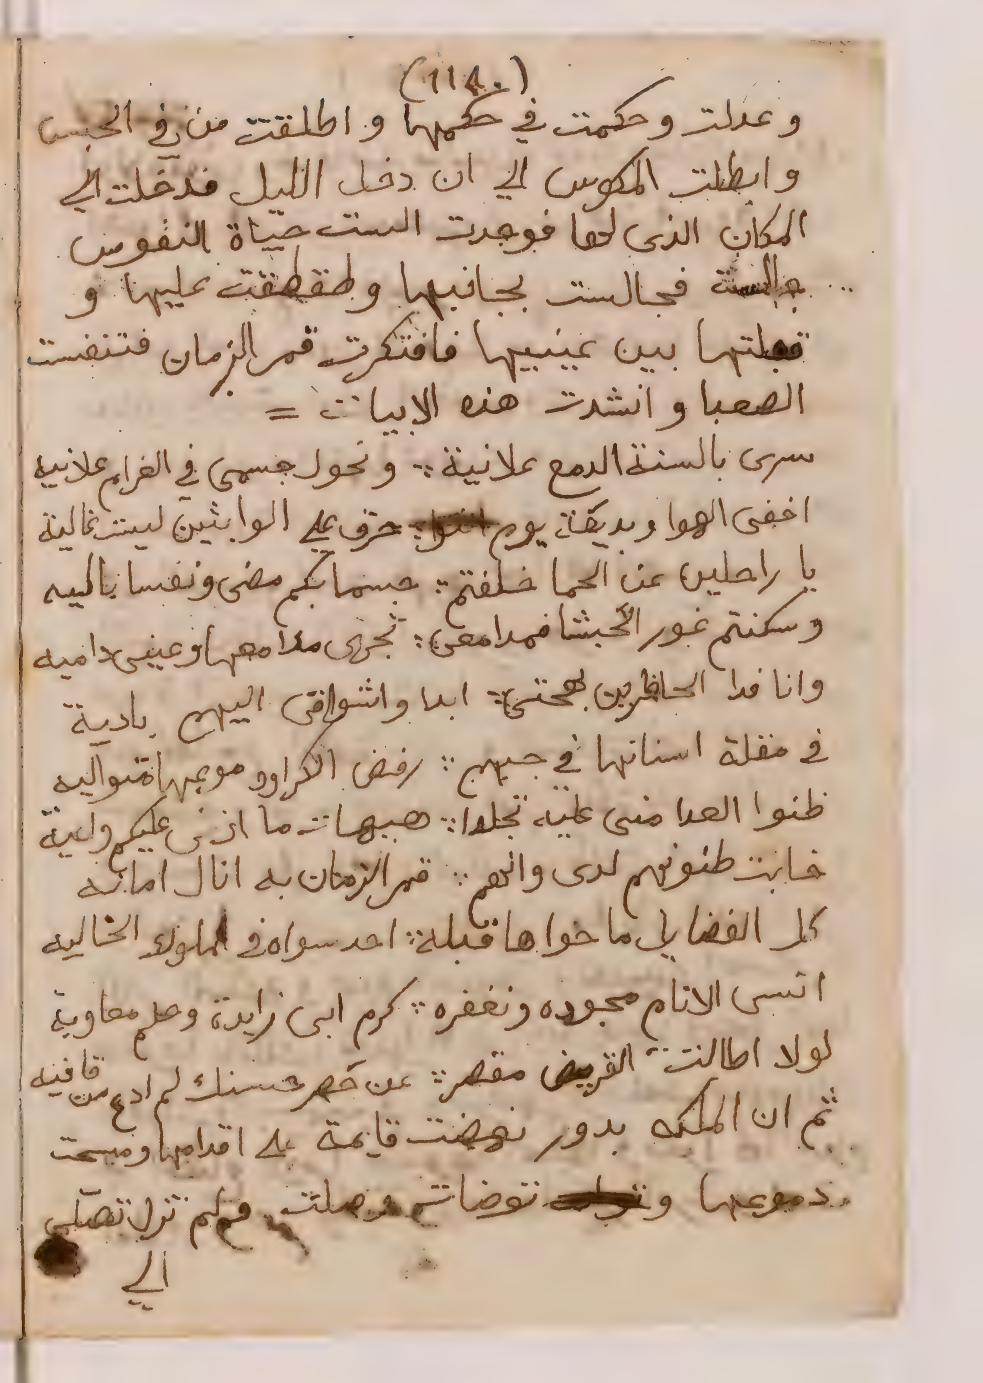 (1140)
و عدلت وحكمت في حكمها و اطلقت من في الحبس
و ابطلت المكوس الي ان دخل الليل فدخلت الي
المكان الذى لها فوجدت الست حياة النفوس
جالسة فجالست بجانبها وطقطقت عليها و
قبلتها بين عينيها فافتكرت قمر الزمان فتنفست
الصعبا و انشدت هذه الابيات =
سرى بالسنة الدمع علانية ؞ ونحول جسمى في الغرام علانيه
اخفى الهوا ويديقة يوم حرق على الواشين ليست غالية
يا راحلين عن الحما خلفتم ؞ جسما بكم مضى ونفسا باليه
وسكنتم غور الحشا فمدامعى ؞ تجرى مدامعها وعينى داميه
وانا فدا الحاظرين بمهجتى ؞ ابدا واشواقى اليهم بادية
في مقلة اسنانها في حبهم ؞ رفض الكرا ودموعها متواليه
ظنوا العدا منى علية تجلدا ؞ هيهات ما اذنى عليكم واعية
خابت ظنونهم لدى وانهم ؞ قمر الزمان به انال امانيه
كل الفضايل ما حواها قبلة ؞ احد سواه في الملوك الخاليه
انسى الانام بجوده ونغفره ؞ كرم ابى زايدة وحلم معاوية
لولا اطالت القريض مقصر ؞ عن حصر حسنك لم ادع من قافيه
ثم ان الملكه بدور نهضت قايمة على اقدامها ومسحت
دموعها و توضات وصلت ولم تزل تصلى
الي